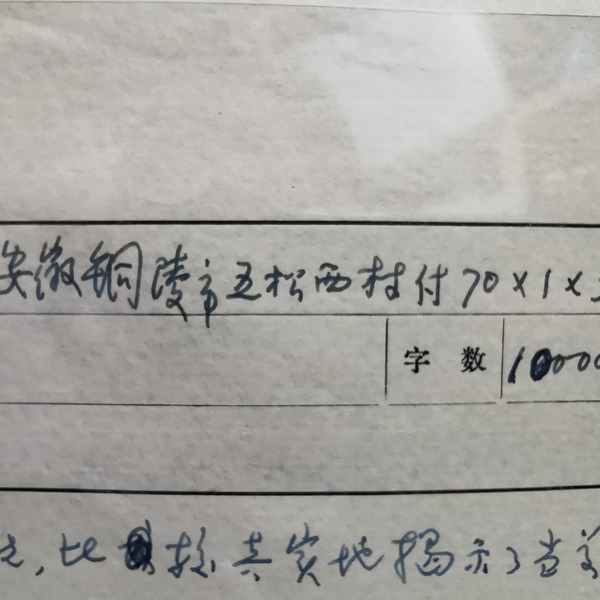 安徽铜陵市五松西村付70×1×
字数 10000
比较真实地揭示了当前